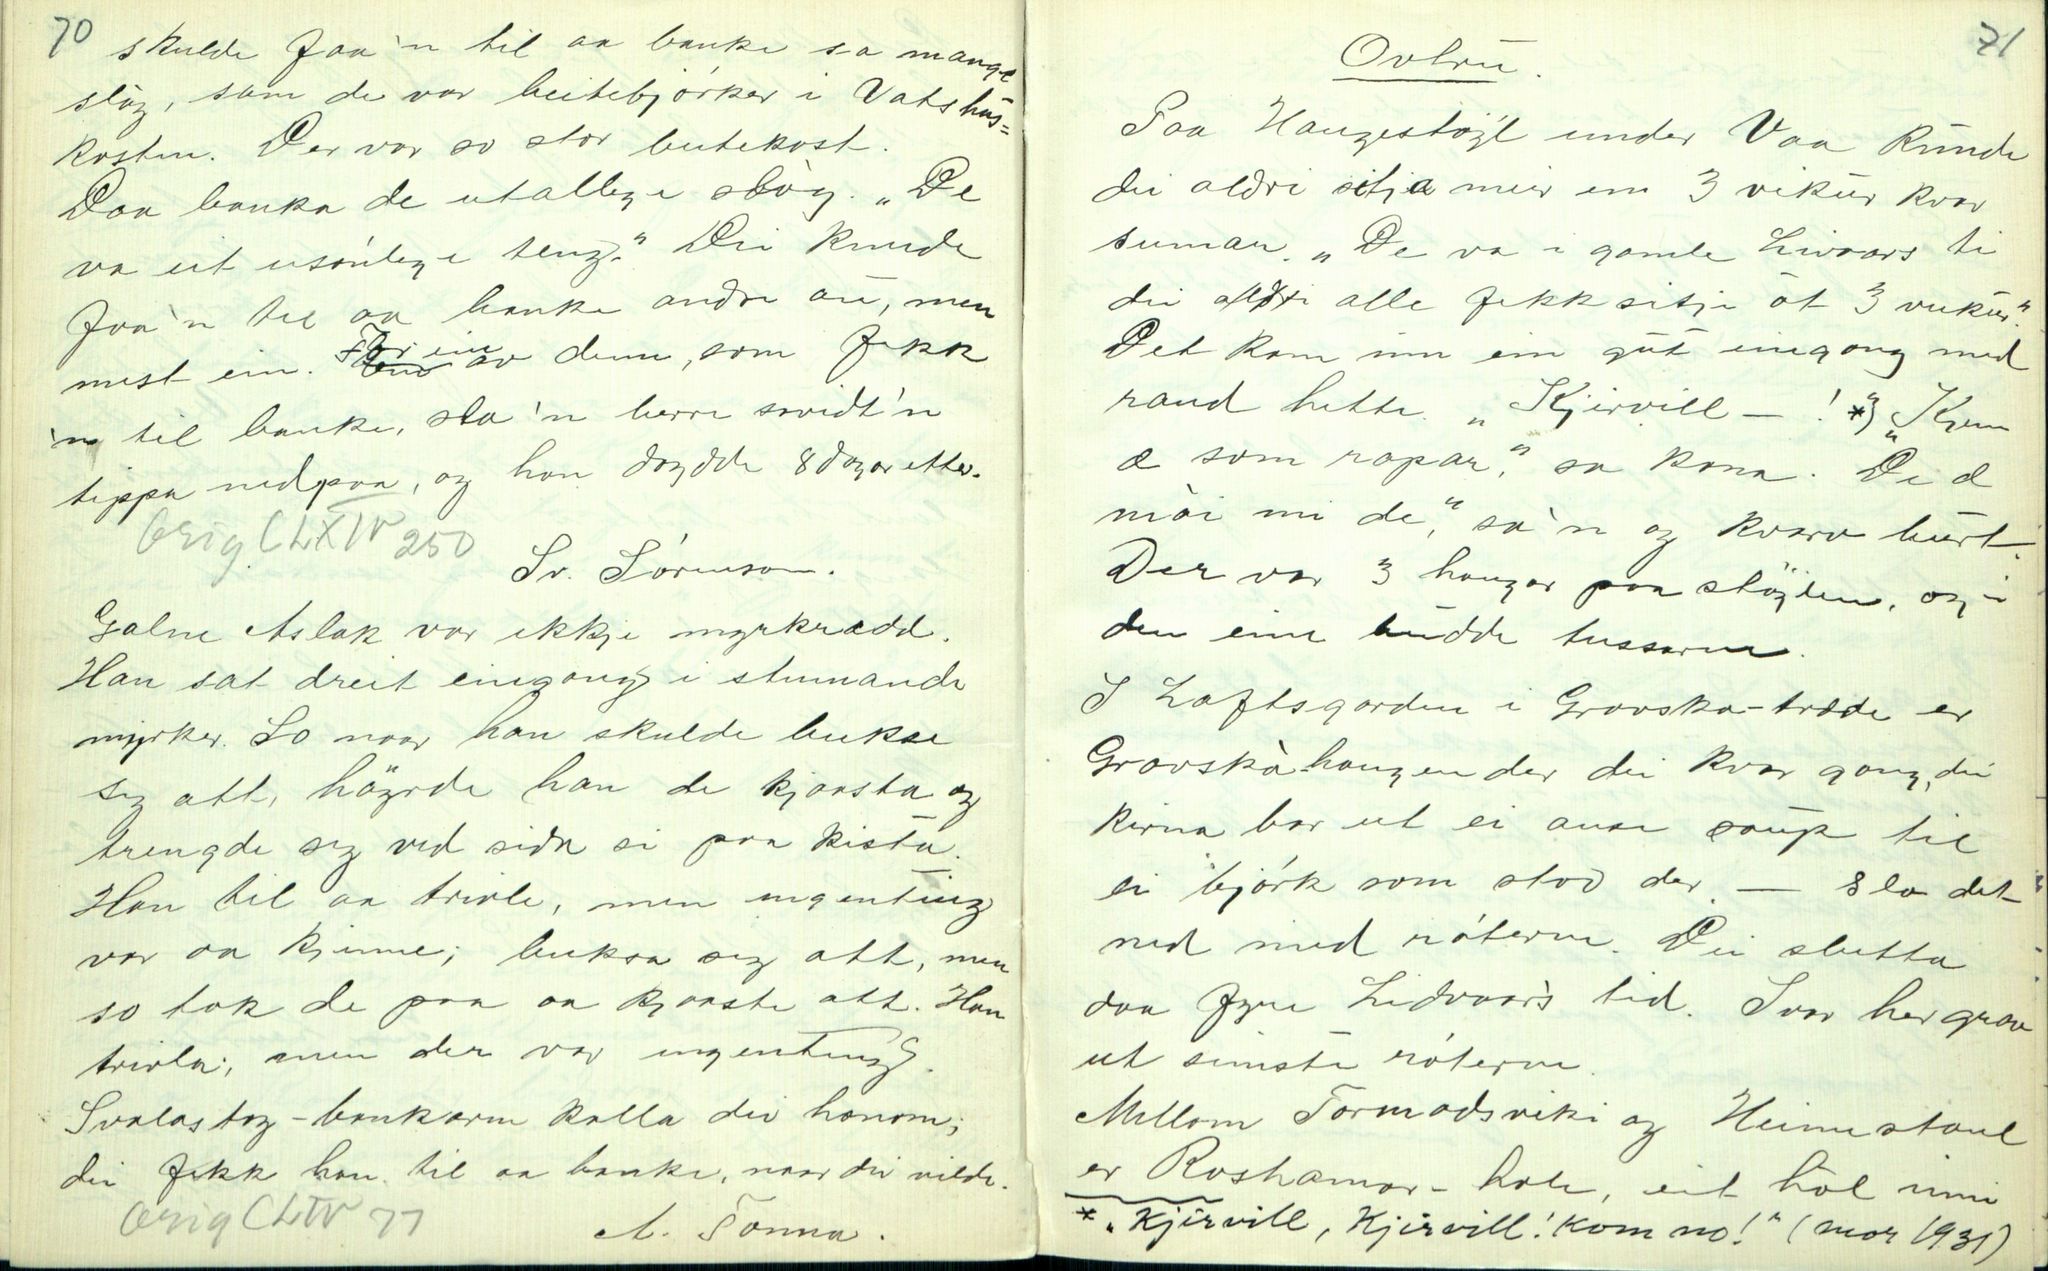 70
skulde faa'n til aa banke so mange
slög, som de var beitebjörker i Vatshús=
kosten. Der var so stor beitekost.
Daa banka de utallege slòg. "De
va eit usónlege teng." Dei kunde
faa'n til aa banke andre au, men
mest ein. For ein av dem, som fekk
'n til banke, sla'n berre svidt'n
tippa nedpaa, og han döydde 8 dagar etter.
Orig CLXIV 250
Sv. Sörenson.
Galne Aslak var ikkje myrkrædd.
Han sat dreit eingong i stummande
myrker. So naar han skulde bukse
seg att, höyrde han de kjaasta og
trengde seg ved sida si paa kista.
Han til aa trivle, men ingenting
var aa kjenne; buksa seg att, men
so tok de paa aa kjaaste att. Han
trivla; men der var ingenting.
Svalastog-bankaren kalla dei honom;
dei fekk han til aa banke, naar dei vilde.
Orig CLIV 77
A. Tonna.
71
Ovtrú.
Paa Haugestöyl under Vaa kúnde
dei aldri sitja meir en 3 vikúr kvar
sumar. "De va i gamle Livaars ti
dei alle fekk sitje òt 3 vukúr."
Det kom inn ein gút eingong med
raud hette. "Kjervill — ! *) "Kjem
æ som ropar," sa kona. "De æ
mòi mi de," sa'n og kvarv búrt.
Der var 3 haugar paa stöylen, og i
den eine búdde tussarne.
I Loftsgarden i Grovska-træde er
Grovskà-haugen der dei kvar gong, dei
kirna bar ut ei ause saup til
ei björk som stod der, — slo det
ned med róterne. Dei slutta
daa fyre Lidvaars tid. Ivar her grov
ut sinste róterne.
Millom Tormodsviki og Heimestaul
er Roshamar-hole, eit hòl inni
* "Kjirvill, Kjirvill! kom no!" (mor 1931)